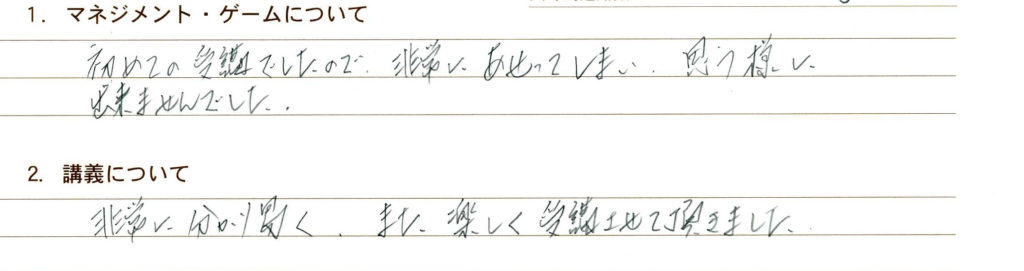 1. マネジメント・ゲームについて
初めての受講でしたので、非常にあせってしまい、思う様に
出来ませんでした。
2. 講義について
非常に分かり易く、また、楽しく受講させて頂きました。